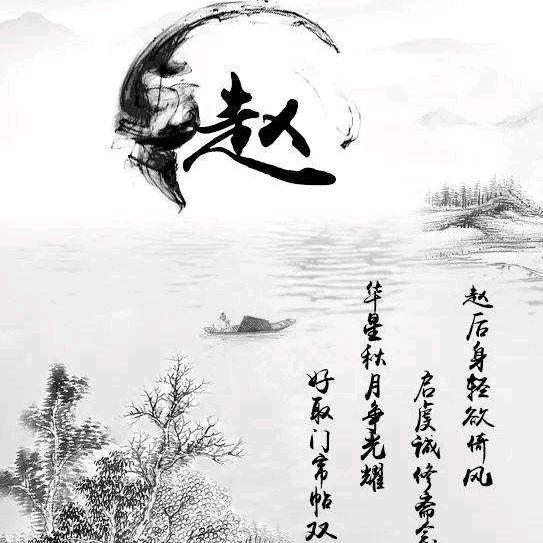 赵
赵后身轻欲倚风
启虔诚修斋
华星秋月争光耀
好取门帘帖双